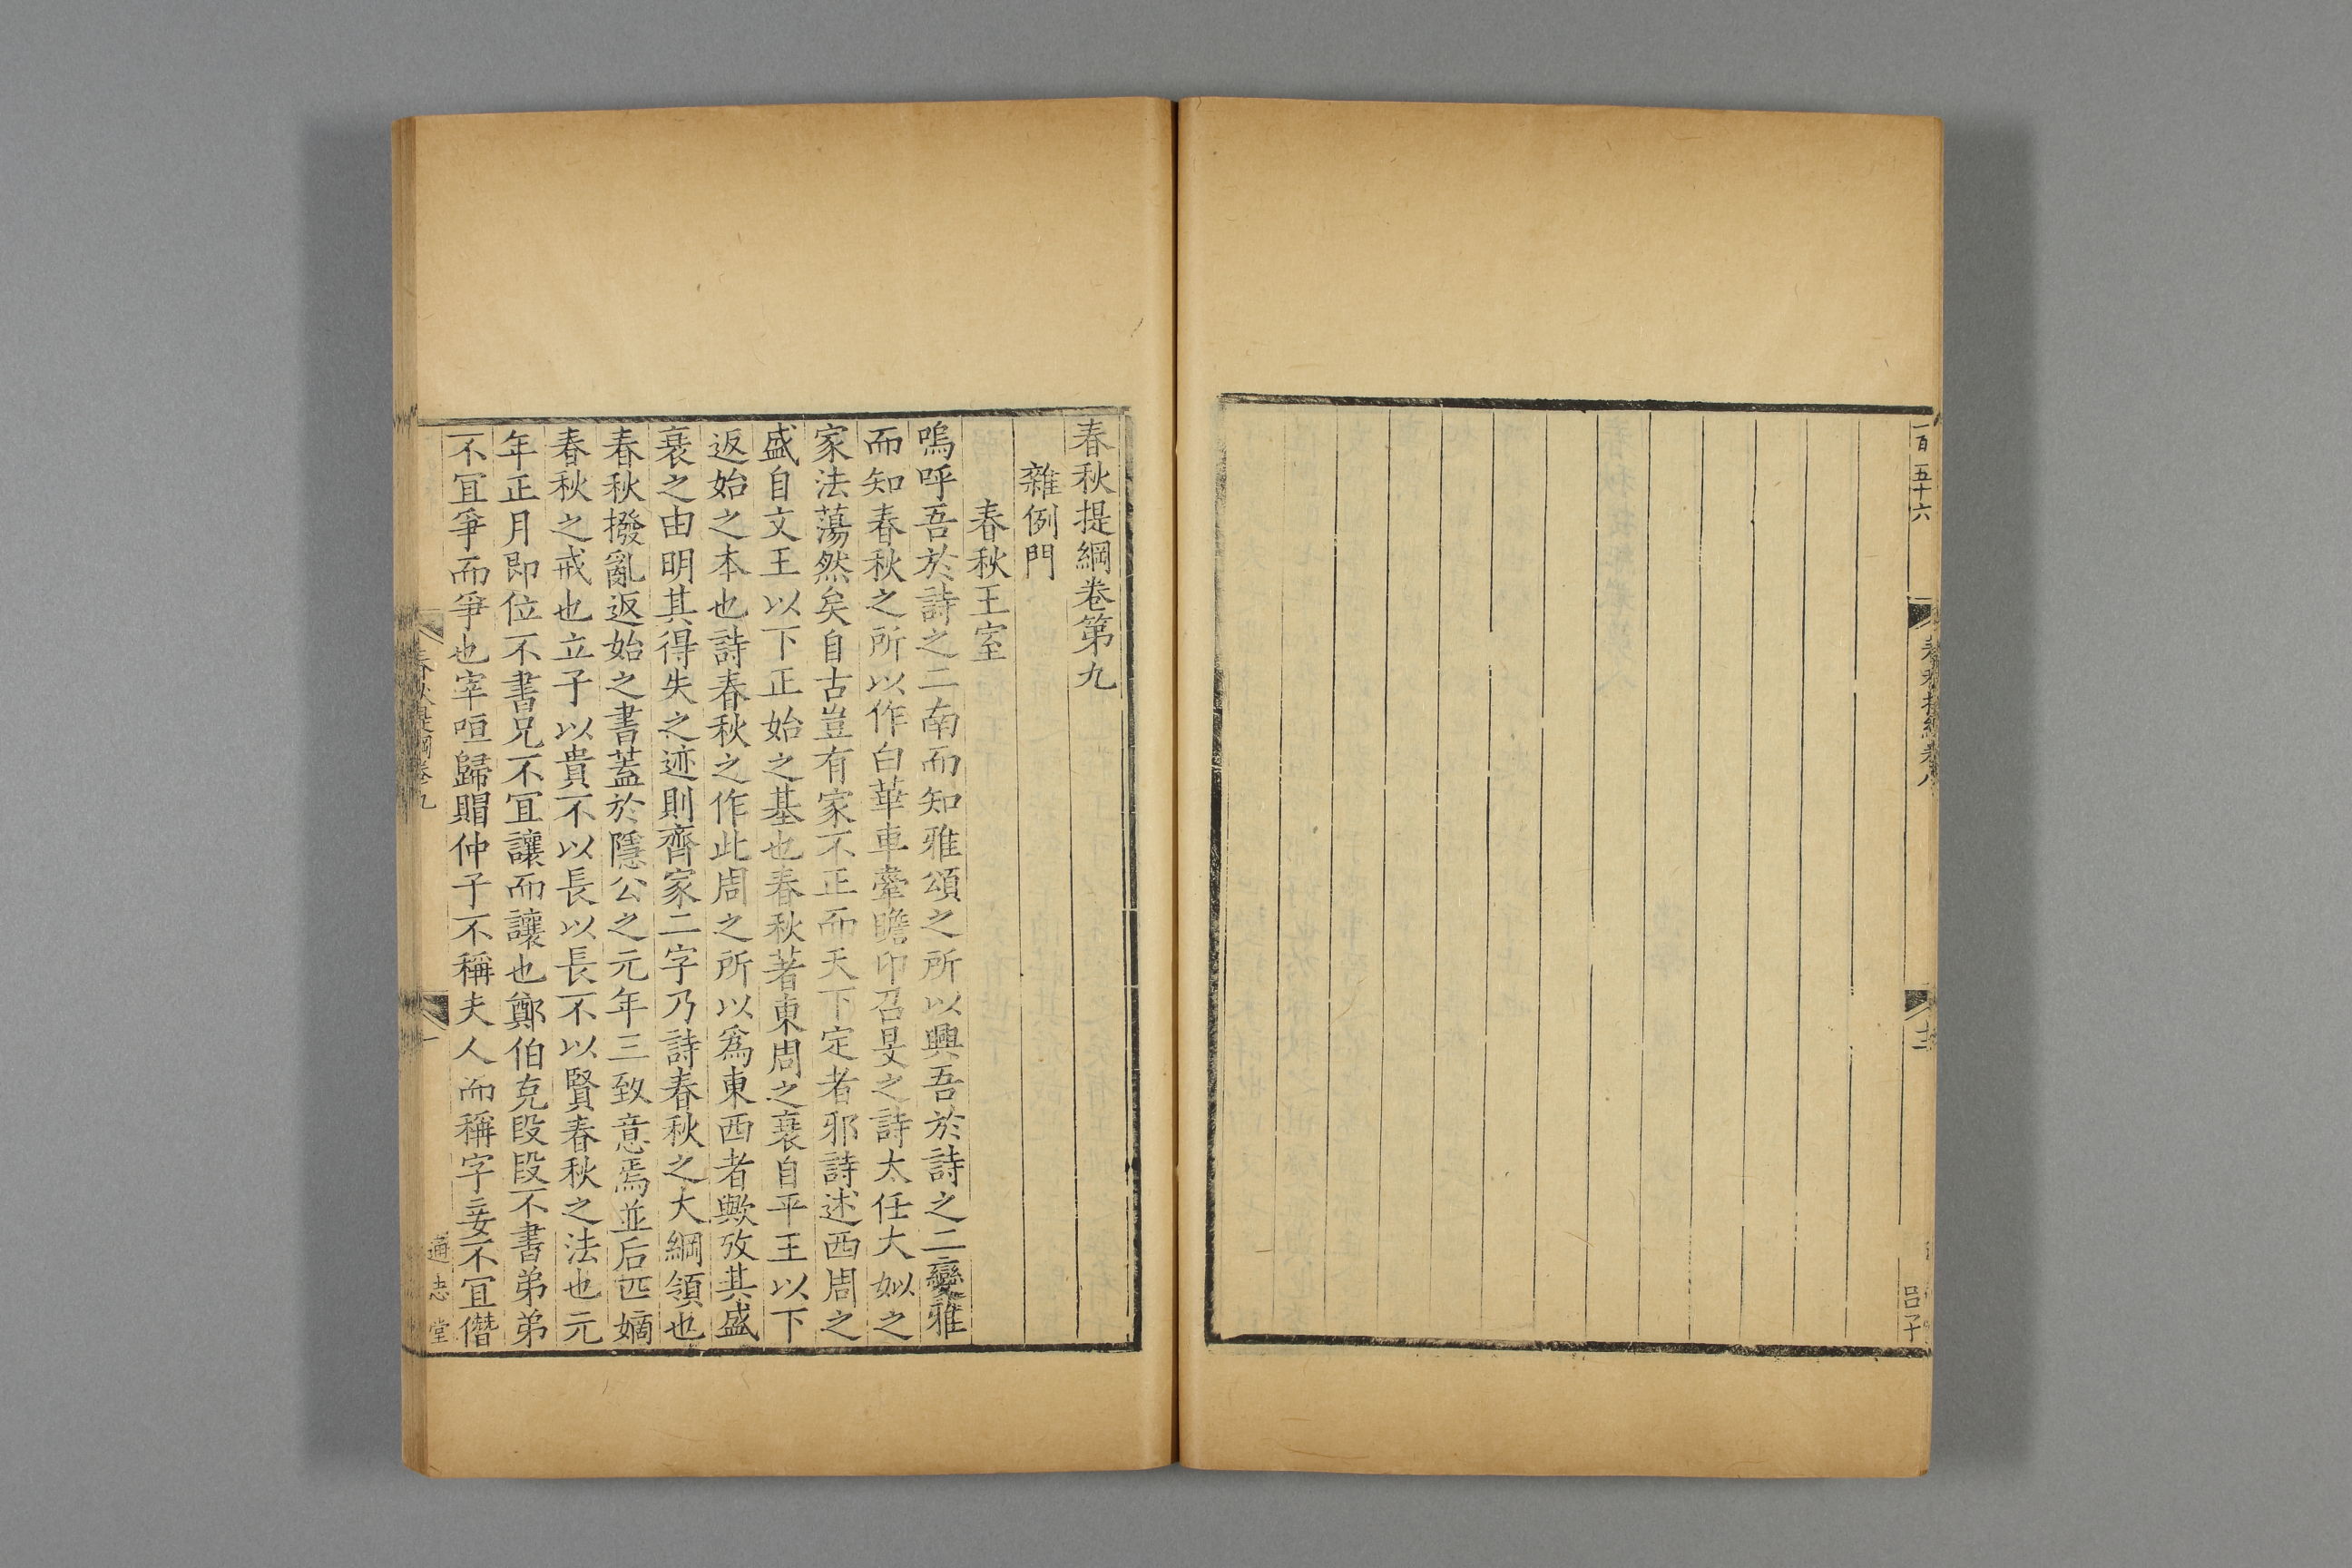 一百五十六
春秋提綱卷八
呂子
春秋提綱卷第九
雜例門
春秋王室
嗚呼吾於詩之二南而知雅頌之所以興吾於詩之二變雅
而知春秋之所以作白華車舝瞻卬召旻之詩太任大姒之
家法蕩然矣自古豈有家不正而天下定者邪詩述西周之
盛自文王以下正始之基也春秋著東周之衰自平王以下
返始之本也詩春秋之作此周之所以爲東西者歟攷其盛
衰之由明其得失之迹則齊家二字乃詩春秋之大綱領也
春秋撥亂返始之書蓋於隱公之元年三致意焉並后匹嫡
春秋之戒也立子以貴不以長以長不以賢春秋之法也元
年正月即位不書兄不宜讓而讓也鄭伯克段段不書弟弟
不宜爭而爭也宰咺歸賵仲子不稱夫人而稱字妾不宜僭
春秋提綱卷九
一
通志堂